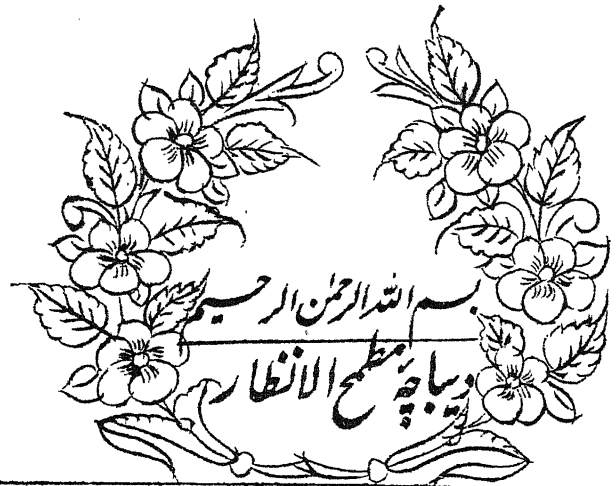 بسم اللہ الرحمٰن الرحیم
دیباچۂ مطمح الانظار